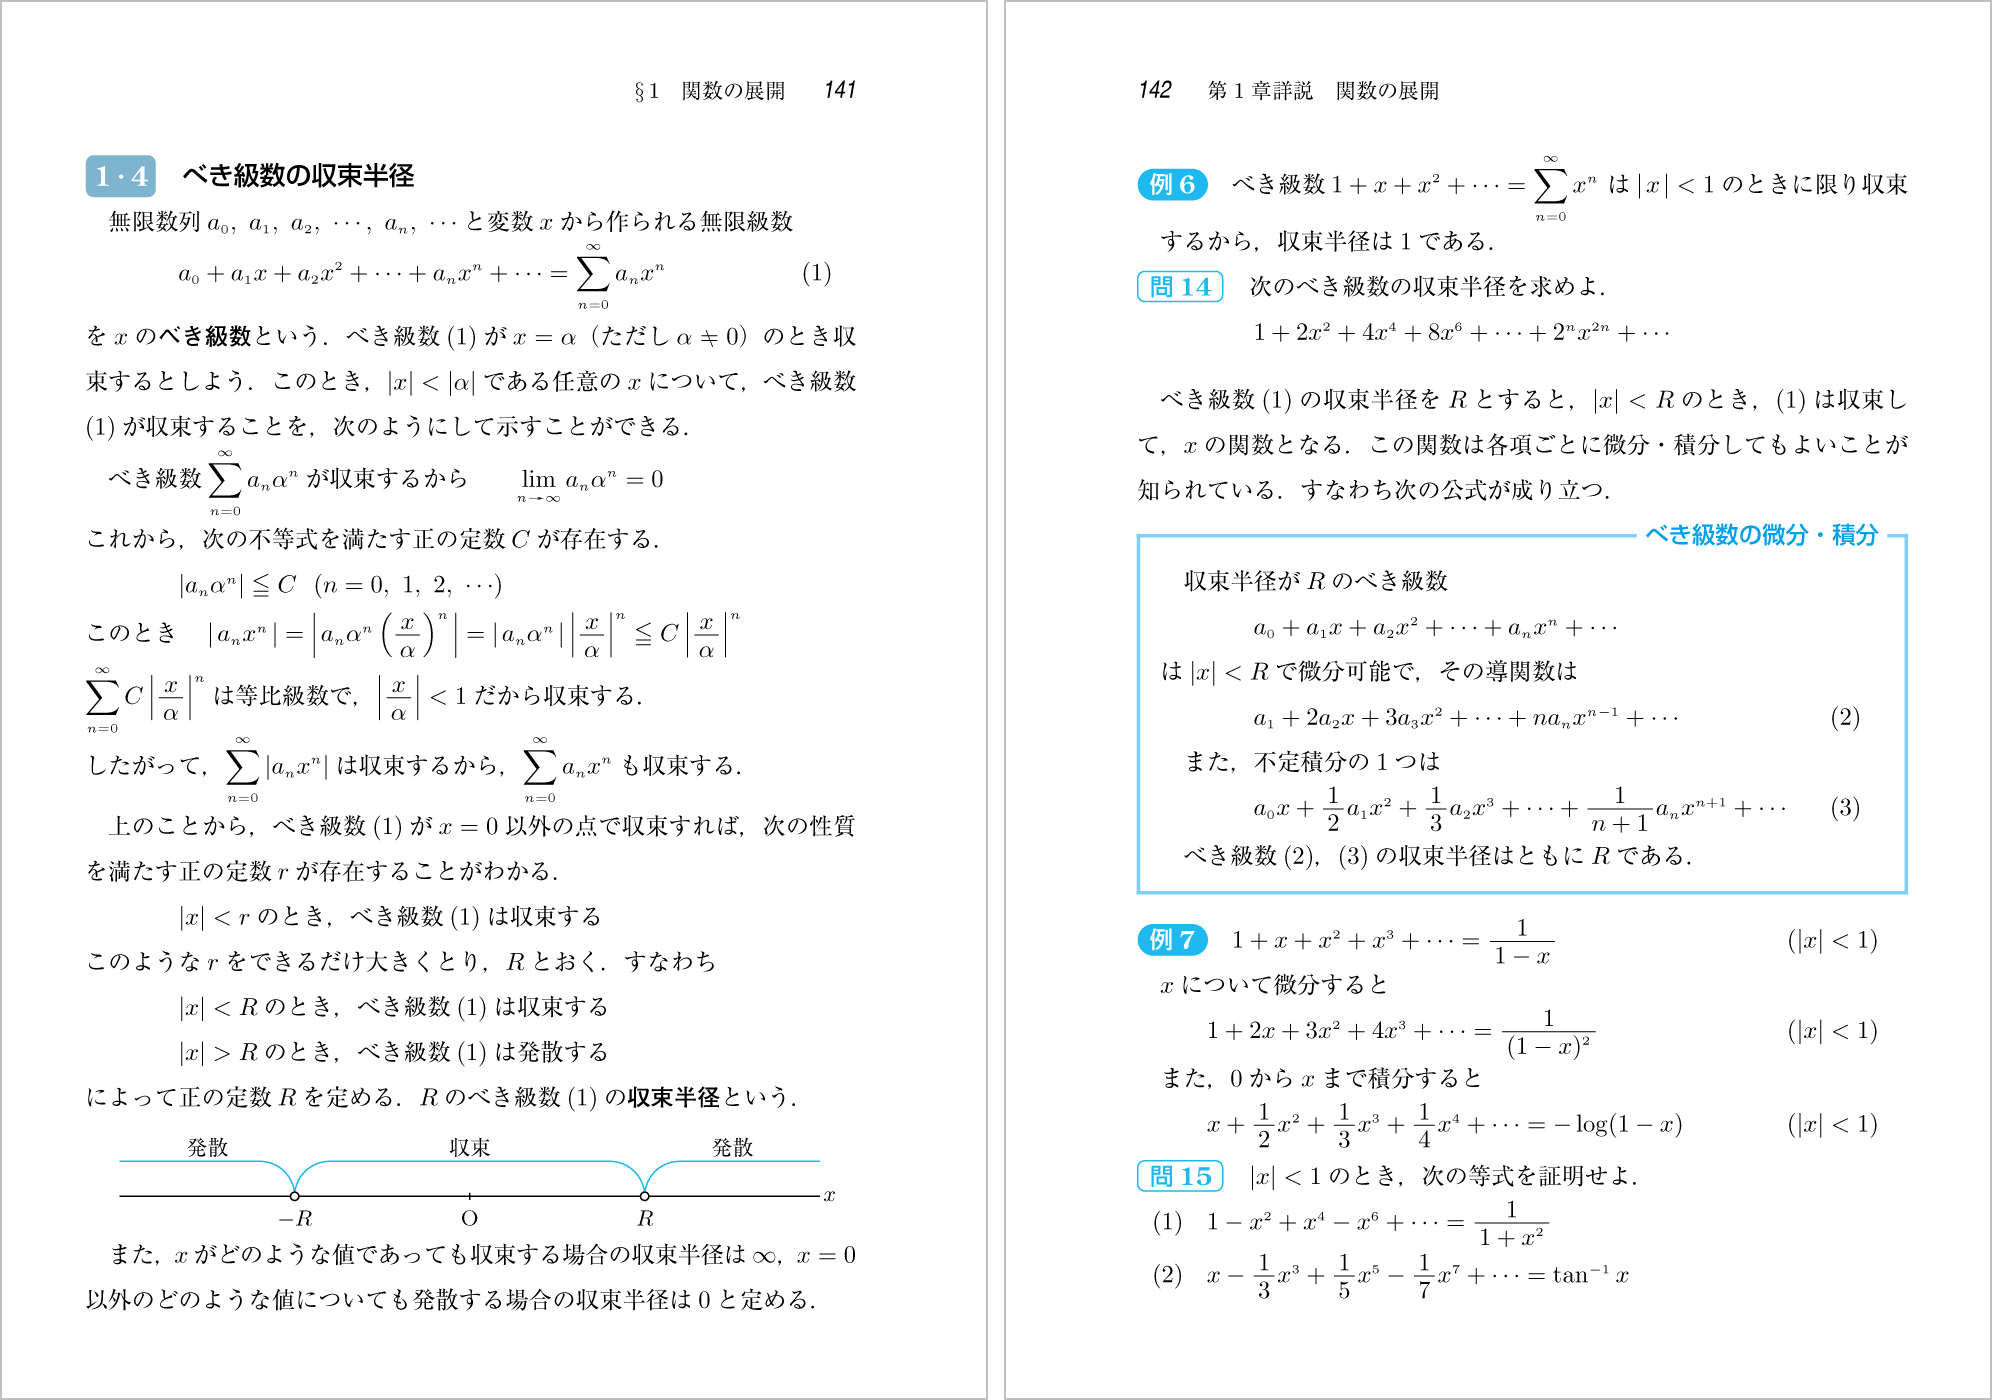 §1　関数の展開　141
1・4　べき級数の収束半径
無限数列 a₀, a₁, a₂, ⋯, aₙ, ⋯ と変数 x から作られる無限級数
a₀ + a₁x + a₂x² + ⋯ + aₙxⁿ + ⋯ = ∑_{n=0}^{∞} aₙxⁿ　(1)
を x のべき級数という．べき級数 (1) が x = α（ただし α ≠ 0）のとき収
束するとしよう．このとき，|x| < |α| である任意の x について，べき級数
(1) が収束することを，次のようにして示すことができる．
べき級数 ∑_{n=0}^{∞} aₙαⁿ が収束するから　lim_{n→∞} aₙαⁿ = 0
これから，次の不等式を満たす正の定数 C が存在する．
|aₙαⁿ| ≦ C (n = 0, 1, 2, ⋯)
このとき　|aₙxⁿ| = |aₙαⁿ (x/α)ⁿ| = |aₙαⁿ| |x/α|ⁿ ≦ C |x/α|ⁿ
∑_{n=0}^{∞} C |x/α|ⁿ は等比級数で，|x/α| < 1 だから収束する．
したがって，∑_{n=0}^{∞} |aₙxⁿ| は収束するから，∑_{n=0}^{∞} aₙxⁿ も収束する．
上のことから，べき級数 (1) が x = 0 以外の点で収束すれば，次の性質
を満たす正の定数 r が存在することがわかる．
|x| < r のとき，べき級数 (1) は収束する
このような r をできるだけ大きくとり，R とおく．すなわち
|x| < R のとき，べき級数 (1) は収束する
|x| > R のとき，べき級数 (1) は発散する
によって正の定数 R を定める．R のべき級数 (1) の収束半径という．
発散　収束　発散
−R　O　R　x
また，x がどのような値であっても収束する場合の収束半径は ∞，x = 0
以外のどのような値についても発散する場合の収束半径は 0 と定める．
142　第 1 章詳説　関数の展開
例 6　べき級数 1 + x + x² + ⋯ = ∑_{n=0}^{∞} xⁿ は |x| < 1 のときに限り収束
するから，収束半径は 1 である．
問 14　次のべき級数の収束半径を求めよ．
1 + 2x² + 4x⁴ + 8x⁶ + ⋯ + 2ⁿx²ⁿ + ⋯
べき級数 (1) の収束半径を R とすると，|x| < R のとき，(1) は収束し
て，x の関数となる．この関数は各項ごとに微分・積分してもよいことが
知られている．すなわち次の公式が成り立つ．
べき級数の微分・積分
収束半径が R のべき級数
a₀ + a₁x + a₂x² + ⋯ + aₙxⁿ + ⋯
は |x| < R で微分可能で，その導関数は
a₁ + 2a₂x + 3a₃x² + ⋯ + naₙxⁿ⁻¹ + ⋯　(2)
また，不定積分の 1 つは
a₀x + 1/2 a₁x² + 1/3 a₂x³ + ⋯ + 1/(n + 1) aₙxⁿ⁺¹ + ⋯　(3)
べき級数 (2)，(3) の収束半径はともに R である．
例 7　1 + x + x² + x³ + ⋯ = 1/(1 − x)　(|x| < 1)
x について微分すると
1 + 2x + 3x² + 4x³ + ⋯ = 1/(1 − x)²　(|x| < 1)
また，0 から x まで積分すると
x + 1/2 x² + 1/3 x³ + 1/4 x⁴ + ⋯ = − log(1 − x)　(|x| < 1)
問 15　|x| < 1 のとき，次の等式を証明せよ．
(1)　1 − x² + x⁴ − x⁶ + ⋯ = 1/(1 + x²)
(2)　x − 1/3 x³ + 1/5 x⁵ − 1/7 x⁷ + ⋯ = tan⁻¹ x